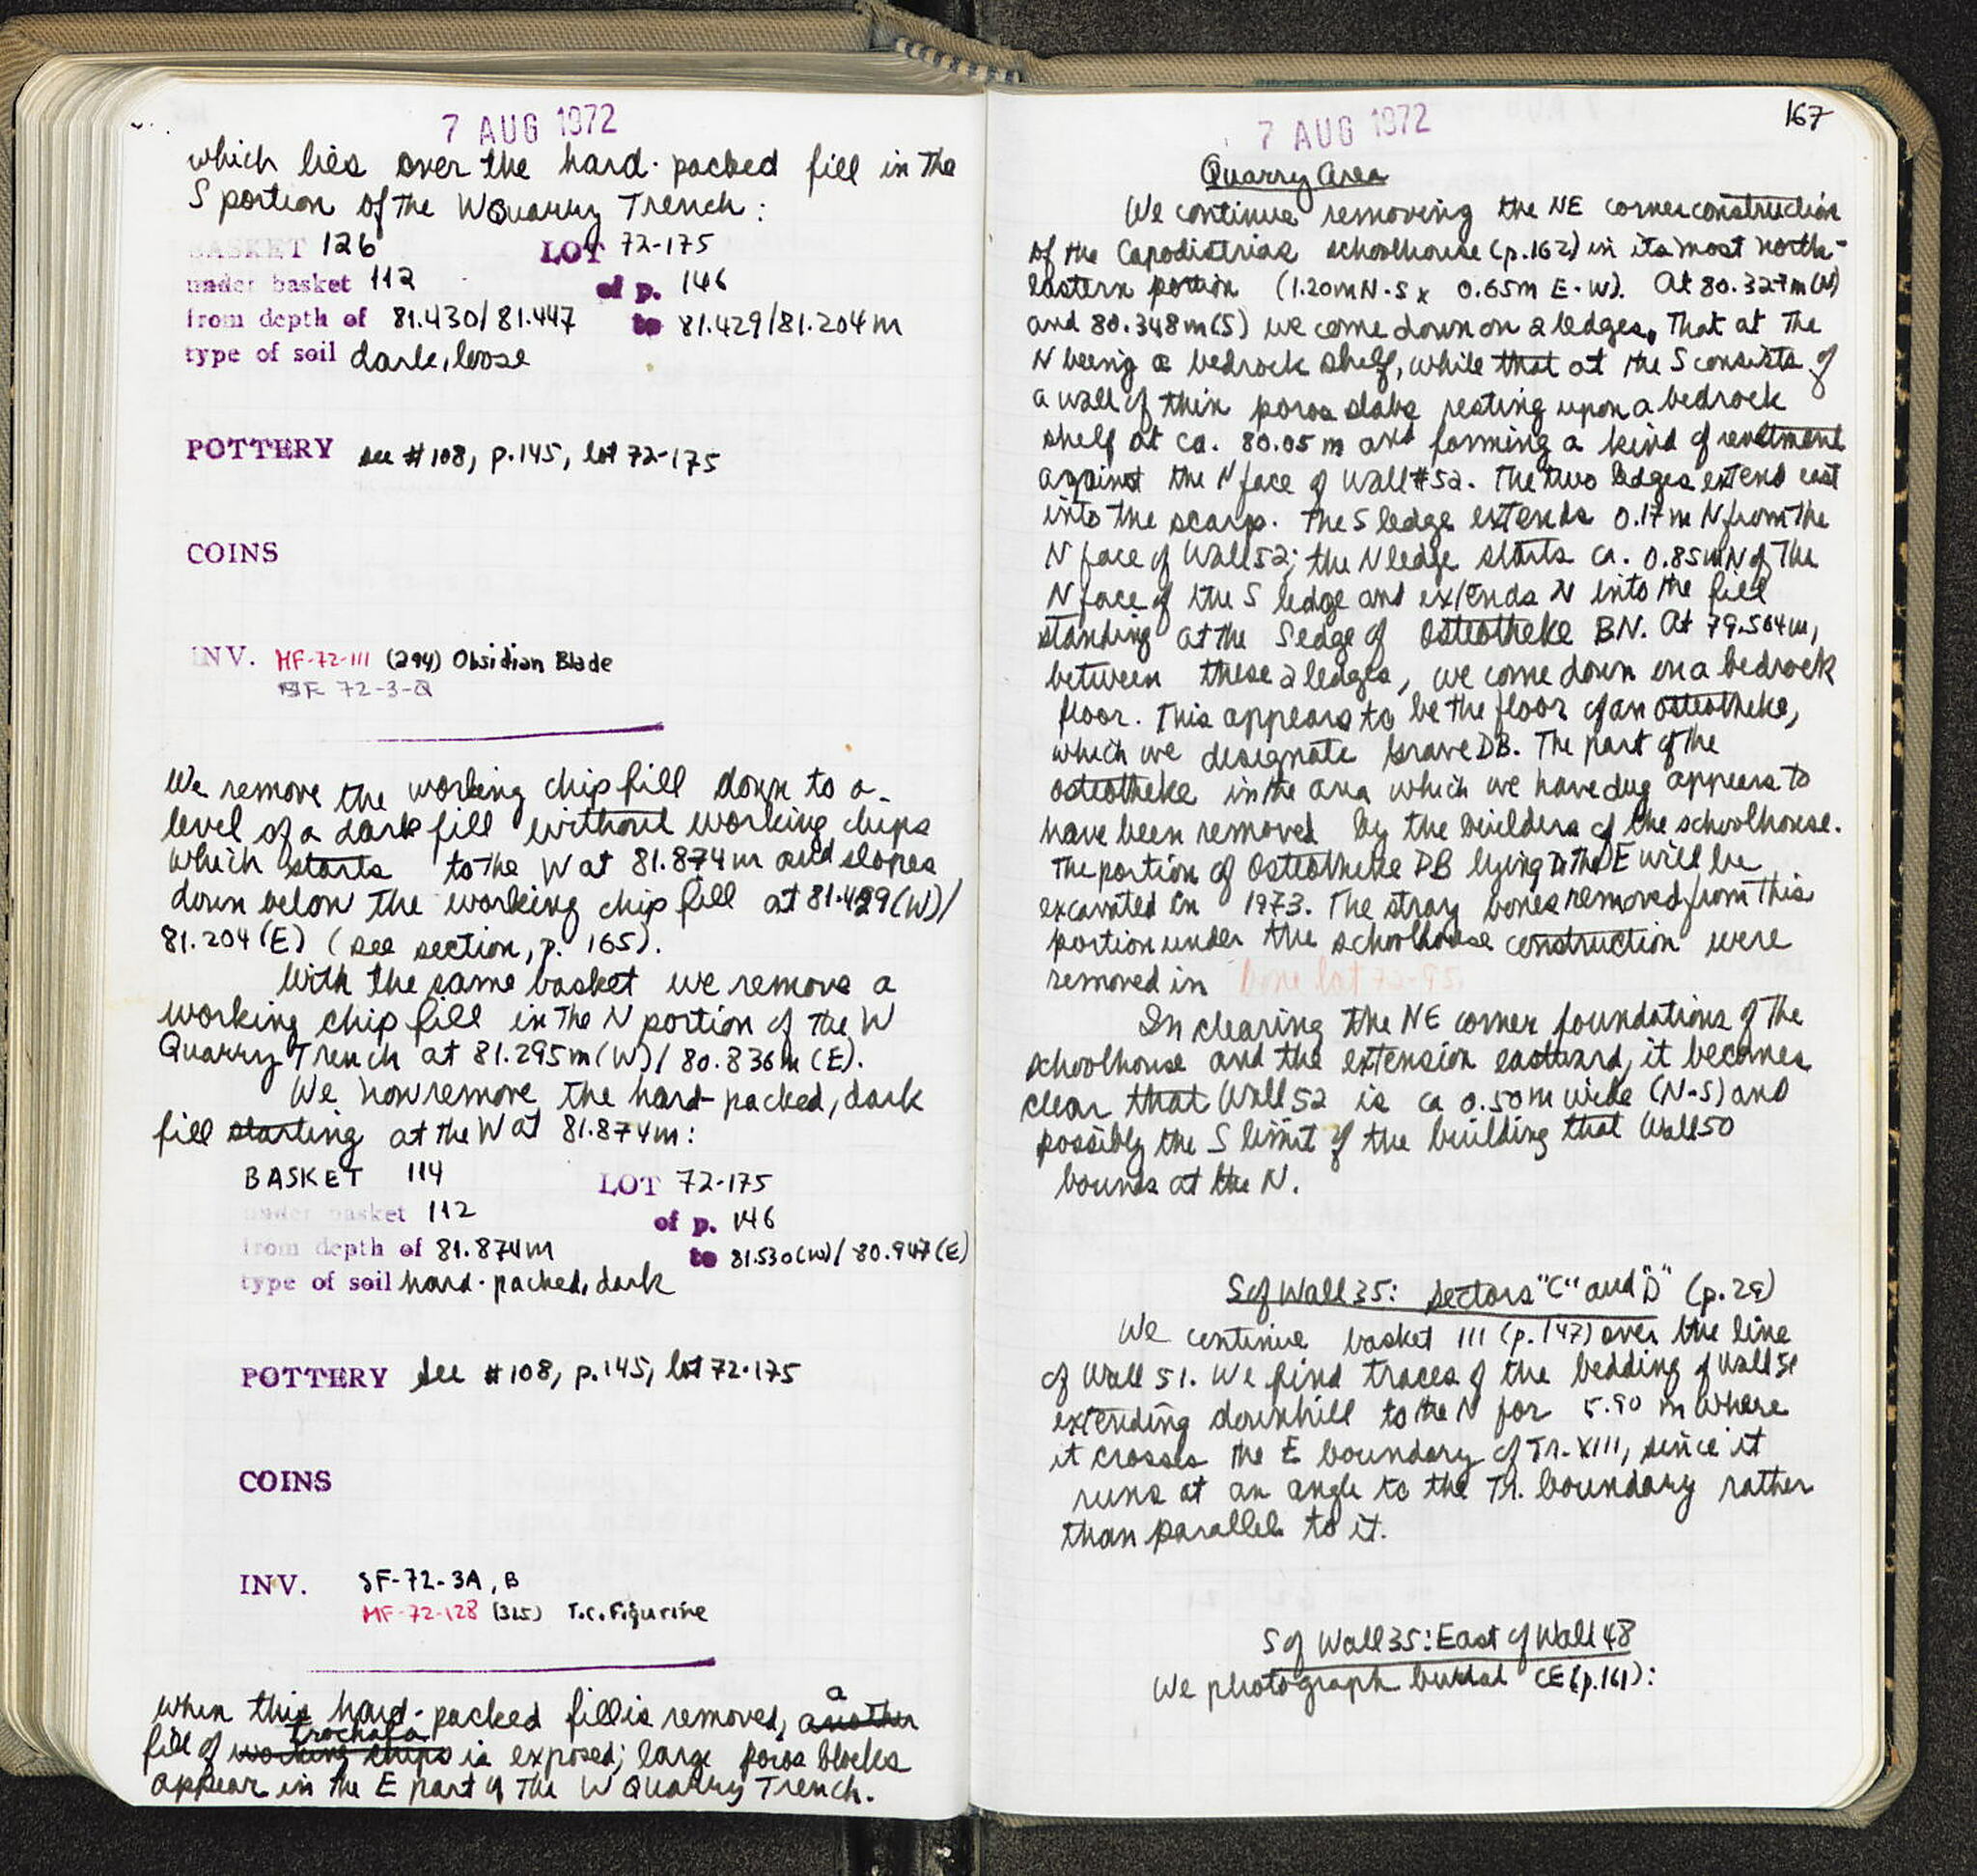 7 AUG 1972
which lies over the hard-packed fill in the
S portion of the W Quarry Trench:
BASKET 126 LOT 72-175
under basket 112 of p. 146
from depth of 81.430/81.447 to 81.429/81.204m
type of soil dark, loose
POTTERY see #108, p.145, lot 72-175
COINS
INV. MF-72-111 (294) Obsidian Blade
72-3-Q
We remove the working chip fill down to a
level of a dark fill without working chips
which starts to the W at 81.874m and slopes
down below the working chip fill at 81.429(W)/
81.204(E) (see section, p. 165).
With the same basket we remove a
working chip fill in the N portion of the W
Quarry Trench at 81.295m(W)/80.836m(E).
We now remove the hard-packed, dark
fill starting at the W at 81.874m:
BASKET 114 LOT 72-175
under basket 112 of p. 146
from depth of 81.874m to 81.530(W)/80.947(E)
type of soil hard-packed, dark
POTTERY See #108, p.145, lot 72-175
COINS
INV. SF-72-3A, B
MF-72-128 (315) T.C. Figurine
When this hard-packed fill is removed, a another
fill of trochala working chips is exposed; large poros blocks
appear in the E part of the W Quarry Trench.
167
7 AUG 1972
Quarry Area
We continue removing the NE corner construction
of the Capodistrias schoolhouse (p.162) in its most north-
eastern portion (1.20m N-S x 0.65m E-W). At 80.327m(N)
and 80.348m(S) we come down on 2 ledges, That at the
N being a bedrock shelf, while that at the S consists of
a wall of thin poros slabs resting upon a bedrock
shelf at ca. 80.05m and forming a kind of revetment
against the N face of Wall #52. The two ledges extend east
into the scarp. The S ledge extends 0.17m N from the
N face of Wall 52; the N ledge starts ca. 0.85m N of the
N face of the S ledge and extends N into the fill
standing at the S edge of Osteotheke BN. At 79.564m,
between these 2 ledges, we come down on a bedrock
floor. This appears to be the floor of an osteotheke,
which we designate Grave DB. The part of the
osteotheke in the area which we have dug appears to
have been removed by the builders of the schoolhouse.
The portion of Osteotheke DB lying to the E will be
excavated in 1973. The stray bones removed from this
portion under the schoolhouse construction were
removed in bone lot 72-95.
In clearing the NE corner foundations of the
schoolhouse and the extension eastward, it becomes
clear that Wall 52 is ca 0.50m wide (N-S) and
possibly the S limit of the building that Wall 50
bounds at the N.
S of Wall 35: Sectors "C" and "D" (p.29)
We continue basket 111 (p.147) over the line
of Wall 51. We find traces of the bedding of Wall 51
extending downhill to the N for 5.90 m where
it crosses the E boundary of Tr. XIII, since it
runs at an angle to the Tr. boundary rather
than parallel to it.
S of Wall 35: East of Wall 48
We photograph burial CE (p.161):